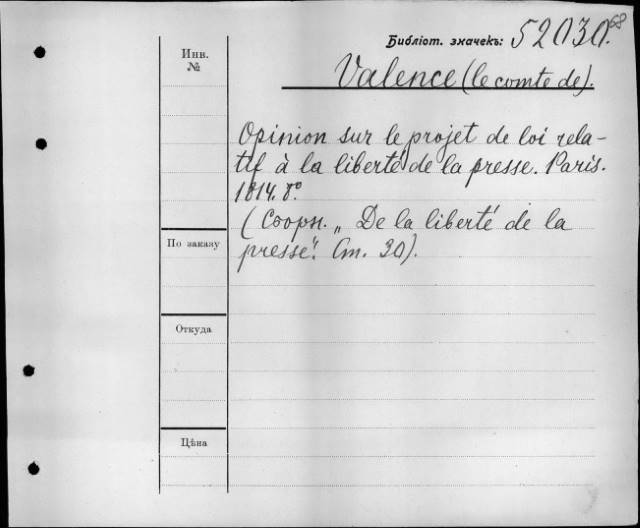 Библіот. значекъ: 52030.68
Инв.
№
Valence (le comte de).
Opinion sur le projet de loi rela-
tif à la liberté de la presse. Paris.
1814. 8°.
(Сборн. „De la liberté de la
По заказу
presse". Ст. 30).
Откуда
Цѣна